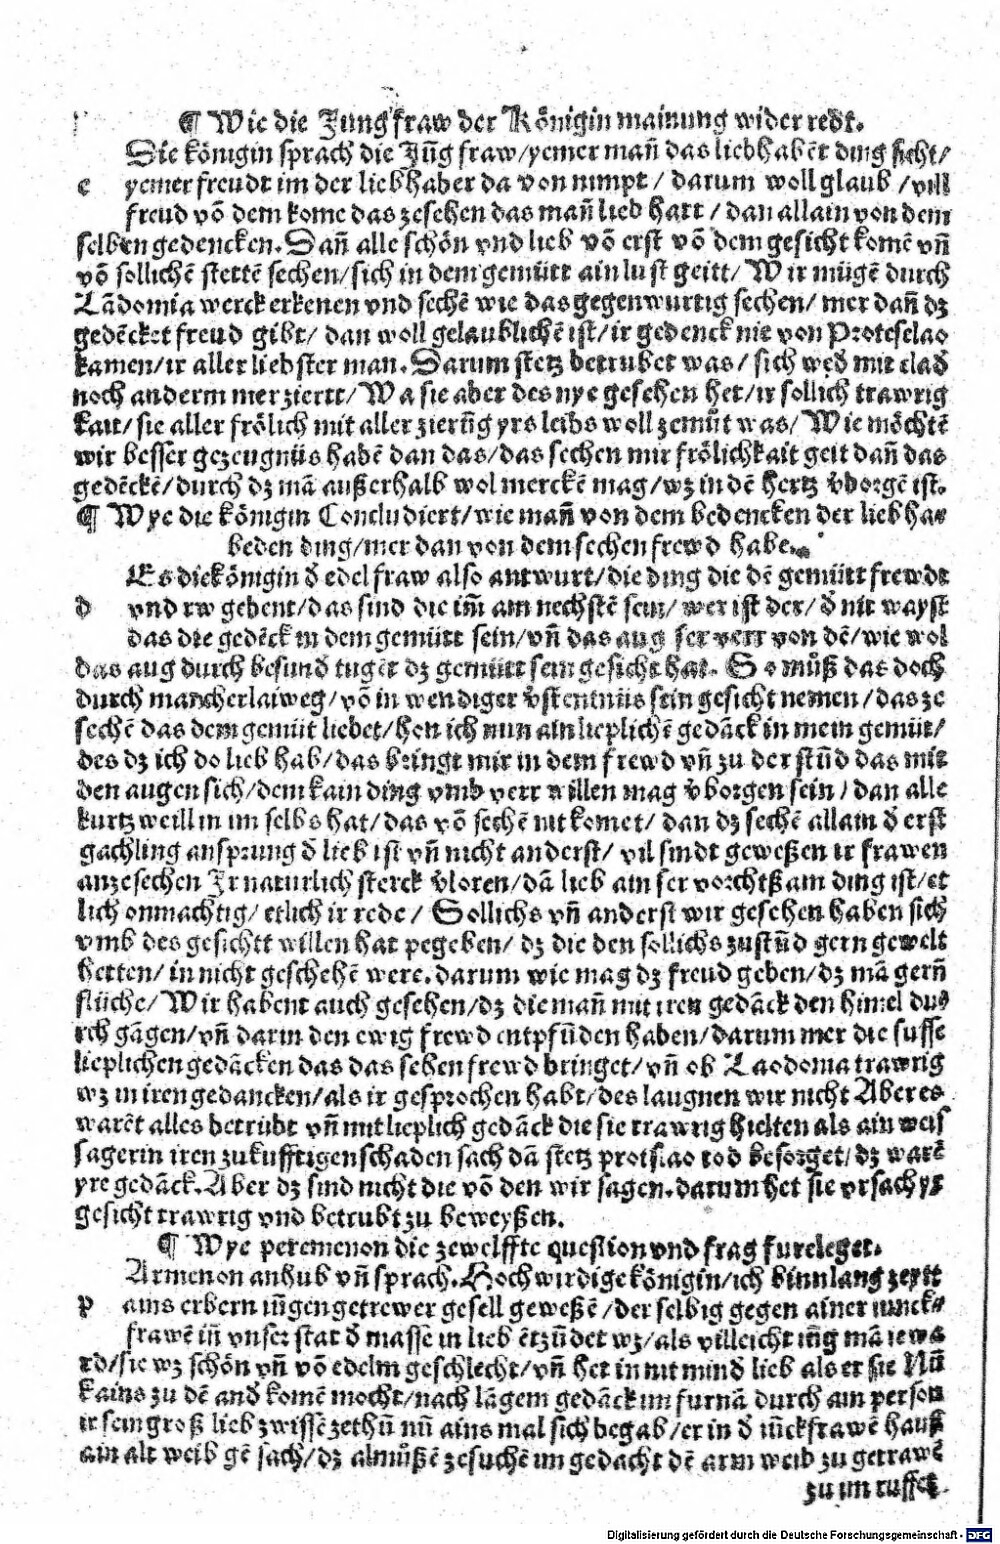 ¶ Wie die Jungfraw der Königin mainung wider redt.
Die königin sprach die Jūgfraw/yemer mañ das liebhaber ding sicht/
e yemer freudt im der liebhaber da von nimpt/ darum woll glaub/vill
freud vō dem kome das zesehen das mañ lieb hatt/ dan allain von dem
selben gedencken. Dañ alle schön vnd lieb vō erst vō dem gesicht komē vñ
vō sollichē stettē sechen/sich in dem gemütt ain lust geitt/ Wir mügē durch
Lādomia werck erkenen vnd sechē wie das gegenwurtig sechen/ mer dañ dz
gedēcket freud gibt/ dan woll gelaublichē ist/ir gedenck nie von Protesclao
kamen/ir aller liebster man. Darum stetz betrubet was/ sich wed mit clad
noch anderm mer ziertt/ Wa sie aber des nye gesehen het/ir sollich trawrig
kait/sie aller frölich mit aller zierūg yrs leibs woll zemůt was/ Wie möchtē
wir besser gezeugnüs habē dan das/das sechen mir frölichkait geit dañ das
gedēckē/durch dz mā außerhalb wol merckē mag/wz in dē hertz v̄borgē ist.
¶ Wye die königin Concludiert/wie mañ von dem bedencken der liebha-
beden ding/mer dan von dem sechen frewd habe.
Es die königin d̄ edel fraw also antwurt/die ding die dē gemütt frewde
d vnd rw gebent/das sind die im̄ am nechstē sein/ wer ist der/ d̄ nit wayst
das die gedēck in dem gemütt sein/vñ das aug ser verr von dē/wie wol
das aug durch besund tugēt dz gemütt sein gesicht hat. So můß das doch
durch mancherlai weg/vō in wendiger v̄stentnüs sein gesicht nemen/das ze
sechē das dem gemüt liebet/hon ich nun ain lieplichē gedāck in mein gemüt/
des dz ich do lieb hab/das bringt mir in dem frewd vñ zu der stūd das mit
den augen sich/dem kain ding vmb verr willen mag v̄borgen sein/dan alle
kurtzweill in im selbs hat/das vō sechē nit komet/ dan dz sechē allain d̄ erst
gachling ansprung d̄ lieb ist vñ nicht anderst/ vil sindt geweßen ir frawen
anzesechen Ir naturlich sterck v̄loren/dā lieb ain ser vorchtßam ding ist/et
lich onmachtig/ etlich ir rede/ Sollichs vñ anderst wir gesehen haben sich
vmb des gesichtt willen hat pegeben/ dz die den sollichs zustūd gern gewelt
hetten/in nicht geschehē were. darum wie mag dz freud geben/dz mā gerñ
flüche/ Wir habent auch gesehen/dz die mañ mit iren gedāck den himel du-
rch gāgen/vñ darin den ewig frewd entpfūden haben/darum mer die susse
lieplichen gedācken das das sehen frewd bringet/vñ ob Laodoma trawrig
wz in iren gedancken/als ir gesprochen habt/des laugnen wir nicht Aber es
warēt alles betrübt vñ nit lieplich gedāck die sie trawrig hielten als ain weis
sagerin iren zukufftigen schaden sach dā stetz protislao tod besorget/dz warē
yre gedāck. Aber dz sind nicht die vō den wir sagen. darum het sie vrsach yr
gesicht trawrig vnd betrubt zu beweyßen.
¶ Wye peremenon die zewelffte question vnd frag fureleget.
Armenon anhub vñ sprach. Hochwirdige königin/ich binn lang zeytt
p ains erbern iūgen getrewer gesell geweßē/der selbig gegen ainer iunck-
frawē in̄ vnser stat d̄ masse in lieb ētzūdet wz/als villeicht iūg mā ie wa
rd/sie wz schön vñ vō edelm geschlecht/vñ het in nit mind̄ lieb als er sie Nū
kains zu dē and̄ komē mocht/nach lāgem gedāck im furnā durch ain person
ir sein groß lieb zwissē zethū nū ains mal sich begab/er in d̄ iūckfrawē hauß
ain alt weib gē sach/dz almůßē zesuchē im gedacht dē arm weib zu getrawē
zu im ruffet
Digitalisierung gefördert durch die Deutsche Forschungsgemeinschaft - DFG